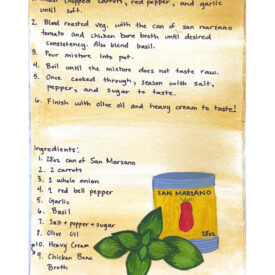 chopped carrots, red pepper, and garlic
until soft.
2. Blend roasted veg. with the can of san marzano
tomato and chicken bone broth until desired
consistency. Also blend basil.
3. Pour mixture into pot.
4. Boil until the mixture does not taste raw.
5. Once cooked through, season with salt,
pepper, and sugar to taste.
6. Finish with olive oil and heavy cream to taste!
Ingredients:
1. 28oz. can of San Marzano
2. 2 carrots
3. 1 whole onion
4. 1 red bell pepper
5. Garlic
6. Basil
7. Salt + pepper + sugar
8. Olive Oil
10. Heavy Cream
9. Chicken Bone
Broth
SAN MARZANO
28oz.